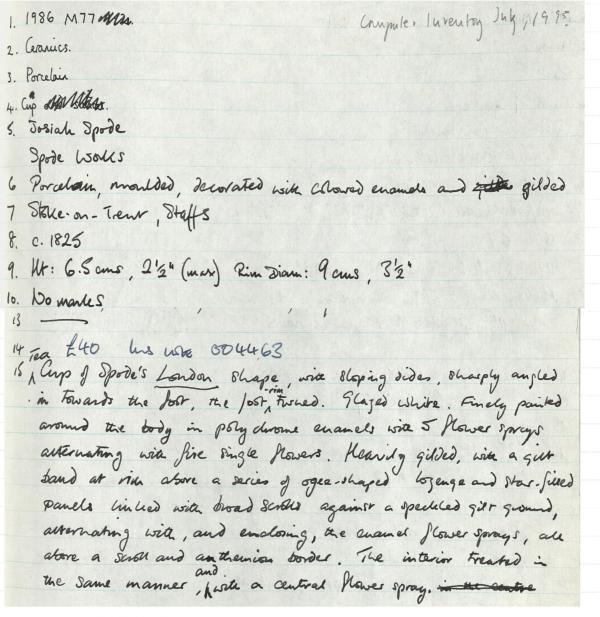 1. 1986 M77
Computer Inventory July, 1995
2. Ceramics.
3. Porcelain
4. Cup
5. Josiah Spode
Spode Works
6 Porcelain, moulded, decorated with coloured enamels and gilded
7 Stoke-on-Trent, Staffs
8. c. 1825
9. Ht: 6.5 cms, 2½" (max) Rim Diam: 9 cms, 3½"
10. No marks,
13
14 £40 004463
15 Tea Cup of Spode's London shape, with sloping sides, sharply angled
in towards the foot, the foot-rim turned. Glazed white. Finely painted
around the body in polychrome enamels with 5 flower sprays
alternating with five single flowers. Heavily gilded, with a gilt
band at rim above a series of ogee-shaped lozenge and star-filled
panels linked with broad scrolls against a speckled gilt ground,
alternating with, and enclosing, the enamel flower sprays, all
above a scroll and anthemion border. The interior treated in
the same manner, and with a central flower spray. in the centre